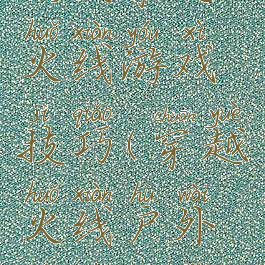 huǒ xiàn yóu xì
火线游戏
jì qiǎo chuān yuè
技巧(穿越
huǒ xiàn hù wài
火线户外